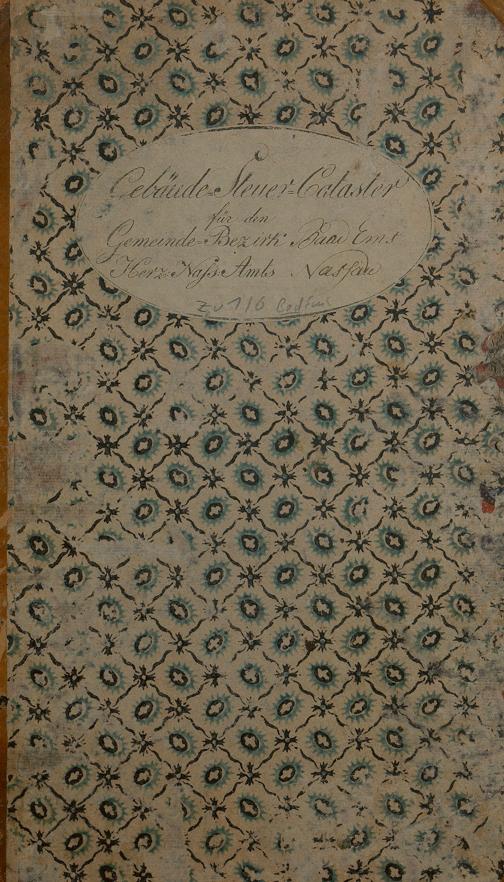 Gebäude=Steuer=Cataster
für den
Gemeinde=Bezirk Baad Ems
Herz. Nass. Amts Nassau
zu 1/6